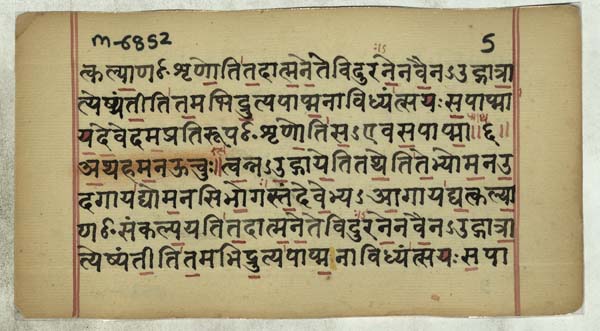 m-6852 5
त्कल्याणꣳशृणोतितदात्मनेतेविदुरनेनवैनऽउद्गात्रा
त्येष्यंतीतितमभिद्रुत्यपाप्मनाविध्यंत्सयःसपाप्मा
यदेवेदमप्रतिरूपꣳशृणोतिसऽएवसपाप्मा॥६॥
अथहमनऊचुः॥त्वन्नऽउद्गायेतितथेतितेभ्योमनउ
दगायद्योमनसिभोगस्तंदेवेभ्यऽआगायद्यत्कल्या
णꣳसंकल्पयतितदात्मनेतेविदुरनेनवैनऽउद्गात्रा
त्येष्यंतीतितमभिद्रुत्यपाप्मनाविध्यंत्सयःसपा